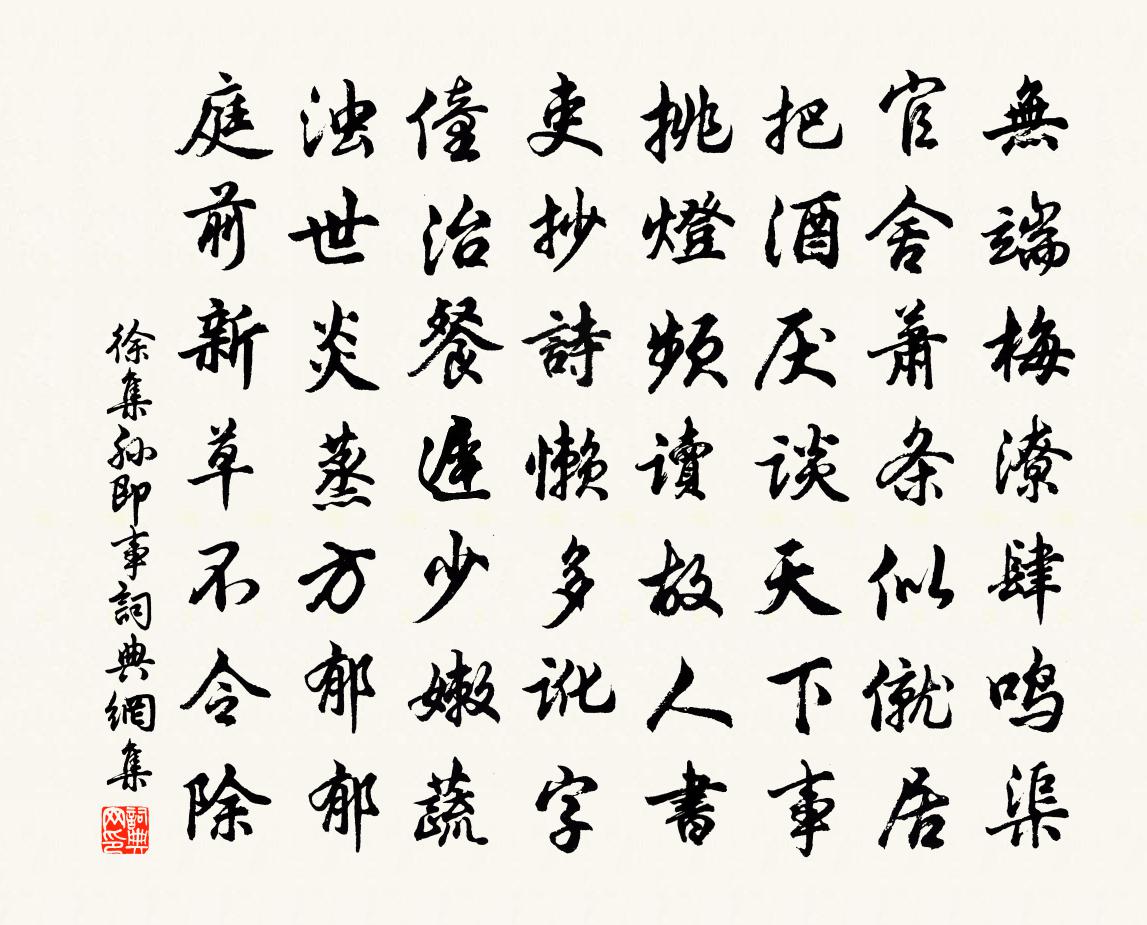 無端梅潦肆鳴渠
官舍蕭条似僦居
把酒厌談天下事
挑燈頻讀故人書
吏抄詩懶多訛字
僮治餐遲少嫩蔬
浊世炎蒸方郁郁
庭前新草不令除
徐集孙即事詞典網集
詞典网印